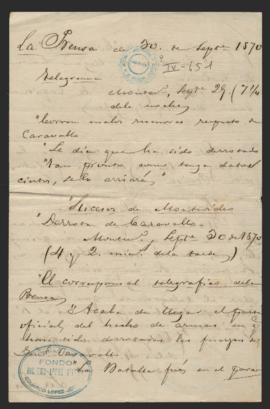 La Prensa de 30. de Sepbre 1870
IV-151
Telegrama
Montev., Septe. 29 (7¼
de la noche)
"Corren malos rumores respecto de
Caravallo
"Se dice que ha sido derrotado
"Tan pronto como tenga datos
ciertos, se lo
Sucesos de Montevideo
Derrota de Caravallo
Montev., Septe. 30 de 1870
(4 y 2 min. de la tarde)
"El corresponsal telegráfico de la
Prensa
"Acaba de llegar el parte
oficial, del hecho de armas en
han sido derrotadas las fuerzas de
Caravallo
"La Batalla fué en el
FONDO